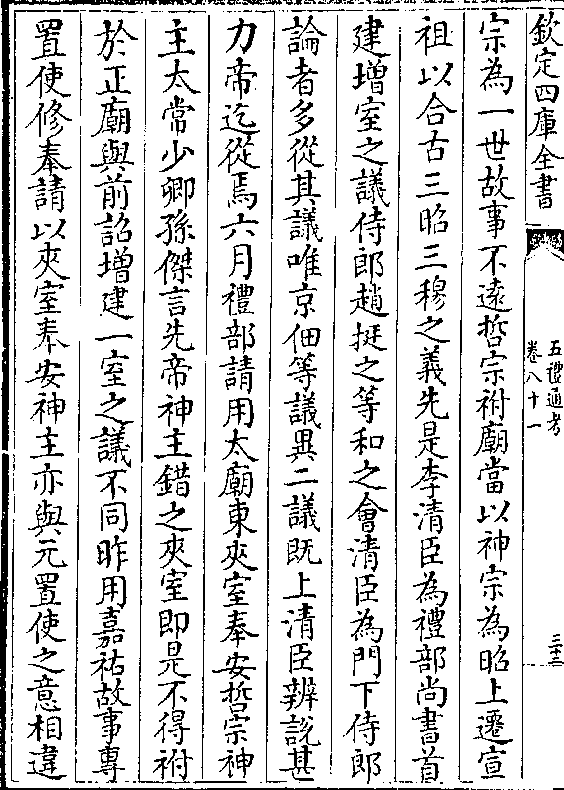 欽定四庫全書
五禮通考
卷八十一
三十三
宗為一世故事不遠哲宗祔廟當以神宗為昭上遷宣
祖以合古三昭三穆之義先是李清臣為禮部尚書首
建增室之議侍郎趙挺之等和之會清臣為門下侍郎
論者多從其議唯京佃等議異二議既上清臣辨說甚
力帝迄從焉六月禮部請用太廟東夾室奉安哲宗神
主太常少卿孫傑言先帝神主錯之夾室即是不得祔
於正廟與前詔增建一室之議不同昨用嘉祐故事專
置使修奉請以夾室奉安神主亦與元置使之意相違